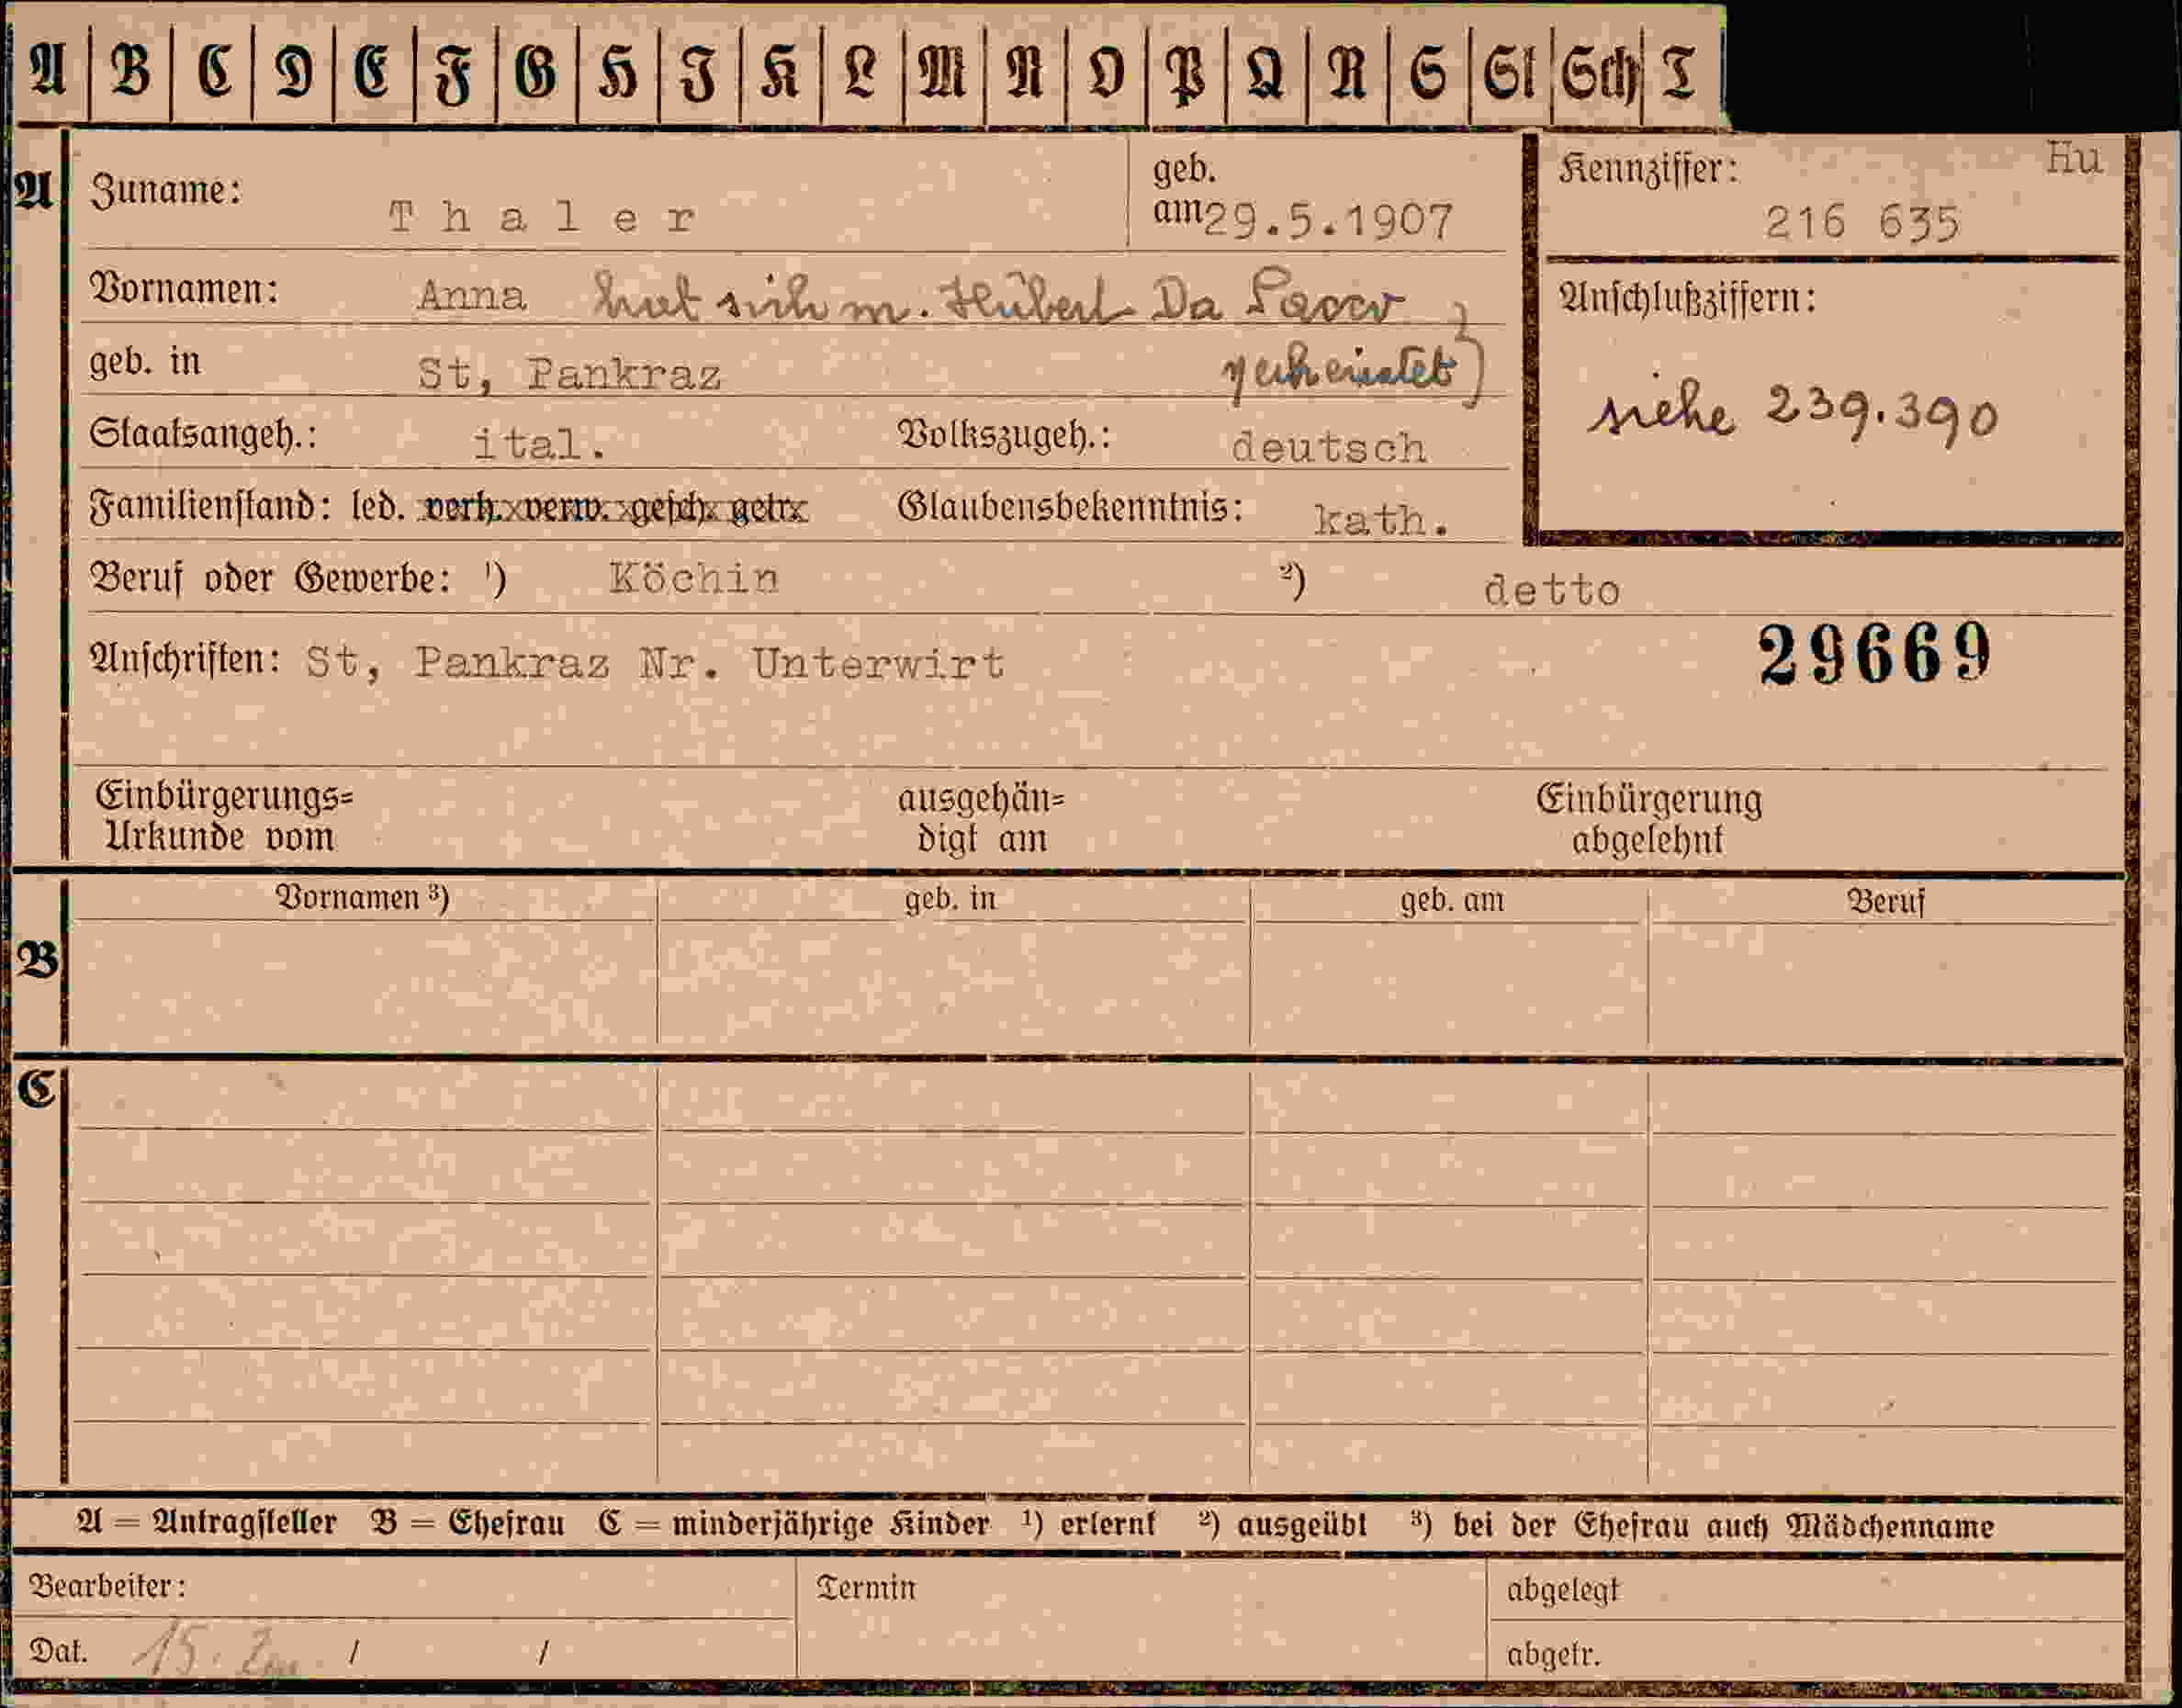 A B C D E F G H J K L M N O P Q R S St Sch T
A Zuname: Thaler geb. am 29.5.1907 Kennziffer: 216 635 Hu
Vornamen: Anna hat sich m. Hubert Da Sacco Anschlußziffern:
geb. in St, Pankraz verheiratet) siehe 239.390
Staatsangeh.: ital. Volkszugeh.: deutsch
Familienstand: led. verh. verw. gesch. getr. Glaubensbekenntnis: kath.
Beruf oder Gewerbe: ¹) Köchin ²) detto
Anschriften: St, Pankraz Nr. Unterwirt 29669
Einbürgerungs= ausgehän= Einbürgerung
Urkunde vom digt am abgelehnt
B Vornamen ³) geb. in geb. am Beruf
C
A = Antragsteller B = Ehefrau C = minderjährige Kinder ¹) erlernt ²) ausgeübt ³) bei der Ehefrau auch Mädchenname
Bearbeiter: Termin abgelegt
Dat. 15. / / abgetr.